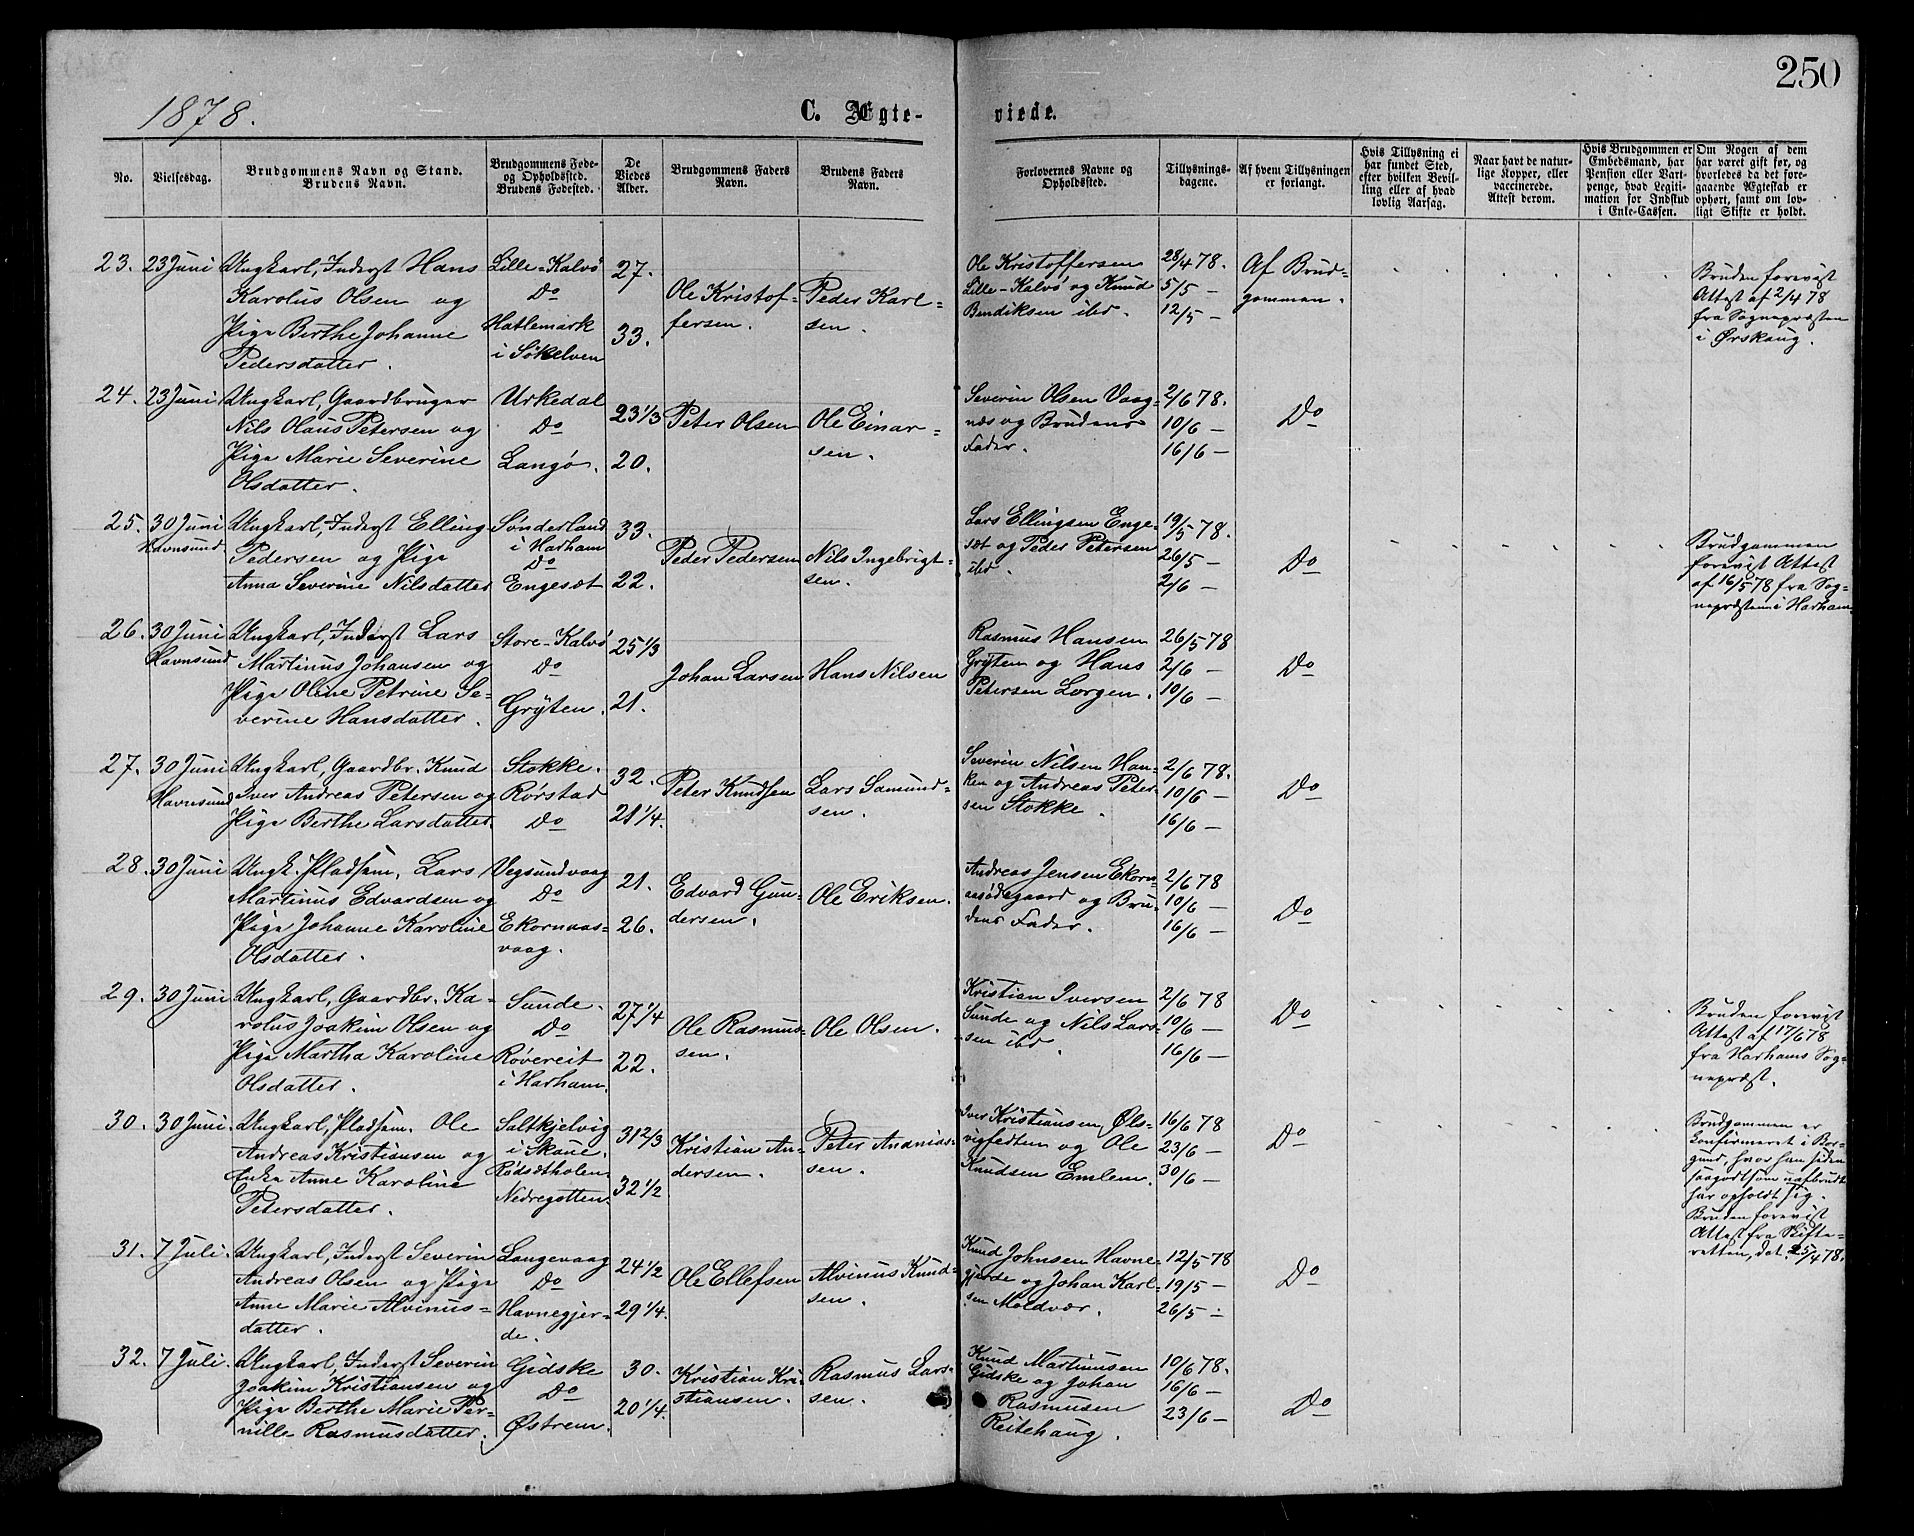 250
1878.
C. Ægte-
viede.
No.
Vielsesdag.
Brudgommens Navn og Stand.
Brudens Navn.
Brudgommens Føde-
og Opholdssted.
Brudens Fødested.
De
Viedes
Alder.
Brudgommens Faders
Navn.
Brudens Faders
Navn.
Forlovernes Navne og
Opholdssted.
Tillysnings-
dagene.
Af hvem Tillysningen
er forlangt.
Hvis Tillysning ei
har fundet Sted,
efter hvilken Bevil-
ling eller af hvad
lovlig Aarsag.
Naar havt de natur-
lige Kopper, eller
vaccinerede.
Attest derom.
Hvis Brudgommen er
Embedsmand, har
Pension eller Vart-
penge, hvad Legiti-
mation for Indskud
i Enke-Cassen.
Om Nogen af dem
har været gift før, og
hvorledes da det fore-
gaaende Ægteskab er
ophørt, samt om lov-
ligt Skifte er holdt.
23.
23 Juni
Ungkarl, Inderst Hans
Karolus Olsen og
Pige Berthe Johanne
Pedersdatter.
Lille-Kalvø
Do
Hatlemark
i Søkelven
27.
33.
Ole Kristof-
fersen.
Peder Karl-
sen.
Ole Kristoffersen
Lille-Kalvø og Knud
Bendiksen ibd.
28/4 78.
5/5 -
12/5 -
Af Brud-
gommen.
Bruden forevist
Attest af 2/4 78
fra Sognepræsten
i Ørskaug.
24.
23 Juni
Ungkarl, Gaardbruger
Nils Olaus Petersen og
Pige Marie Severine
Olsdatter.
Urkedal
Do
Langø.
23 1/3
20.
Peter Olsen
Ole Einar-
sen.
Severin Olsen Vaag-
næs og Brudens
Fader.
2/6 78.
10/6 -
16/6 -
Do
25.
30 Juni
Havnsund
Ungkarl, Inderst Elling
Pedersen og Pige
Anna Severine Nilsdatter
Sønderland
i Harham
Do
Engesæt
33.
22.
Peder Pedersen
Nils Ingebrigt-
sen.
Lars Ellingsen Enge-
sæt og Peder Petersen
ibd.
19/5 78.
26/5 -
2/6 -
Do
Brudgommen
forevist Attest
af 16/5 78 fra Sog-
nepræsten i Harham
26.
30 Juni
Havnsund
Ungkarl, Inderst Lars
Martinus Johansen og
Pige Oline Petrine Se-
verine Hansdatter.
Store-Kalvø
Do
Gryten.
25 1/3
21.
Johan Larsen
Hans Nilsen
Rasmus Hansen
Gryten og Hans
Petersen Lorgen.
26/5 78
2/6 -
10/6 -
Do
27.
30 Juni
Havnsund
Ungkarl, Gaardbr. Knud
Iver Andreas Petersen og
Pige Berthe Larsdatter.
Stokke.
Rørstad
Do
32.
21 1/4.
Peter Knudsen
Lars Samund-
sen.
Severin Nilsen Han-
ken og Andreas Peter-
sen Stokke.
2/6 78.
10/6 -
16/6 -
Do
28.
30 Juni
Ungk. Pladsem. Lars
Martinus Edvardsen og
Pige Johanne Karoline
Olsdatter.
Vegsundvaag
Do
Ekornaas-
vaag.
21.
26.
Edvard Gun-
dersen.
Ole Eriksen.
Andreas Jensen Ekorn-
aasødegaard og Bru-
dens Fader.
2/6 78
10/6 -
16/6 -
Do
29.
30 Juni
Ungkarl, Gaardbr. Ka-
rolus Joakim Olsen og
Pige Martha Karoline
Olsdatter.
Sunde.
Do
Røvereit
i Harham.
27 1/4
22.
Ole Rasmus-
sen.
Ole Olsen.
Kristian Iversen
Sunde og Nils Lars-
sen ibd.
2/6 78
10/6 -
16/6 -
Do
Bruden forevist
Attest af 17/6 78
fra Harhams Sog-
nepræst.
30.
30 Juni.
Ungkarl, Pladsem. Ole
Andreas Kristiansen og
Enke Anne Karoline
Petersdatter.
Saltkjelvig
i Skaue.
Rødsætholen
Nedregotten.
31 2/3
32 1/2
Kristian An-
dersen.
Peter Ananias-
sen.
Iver Kristiansen Øls-
vigfedten og Ole
Knudsen Emlem.
16/6 78
23/6 -
30/6 -
Do
Brudgommen er
konfirmeret i Bor-
gund, hvor han siden
saagodtsom uafbrudt
har opholdt sig.
Bruden forevist
Attest fra Skifte-
retten, dat. 25/4 78.
31.
7 Juli.
Ungkarl, Inderst Severin
Andreas Olsen og Pige
Anne Marie Alvinus-
datter.
Langevaag
Do
Havnegjer-
de.
24 1/2
29 1/4.
Ole Ellefsen
Alvinus Knud-
sen.
Knud Johnsen Havne-
gjerde og Johan Karl-
sen Moldvær.
12/5 78
19/5 -
26/5 -
Do
32.
7 Juli.
Ungkarl, Inderst Severin
Joakim Kristiansen og
Pige Berthe Marie Per-
nille Rasmusdatter.
Gidske
Do
Østrem.
30.
20 1/4.
Kristian Kri-
stiansen.
Rasmus Lars-
sen.
Knud Martinusen
Gidske og Johan
Rasmusen
Reitehaug.
10/6 78.
16/6 -
23/6 -
Do